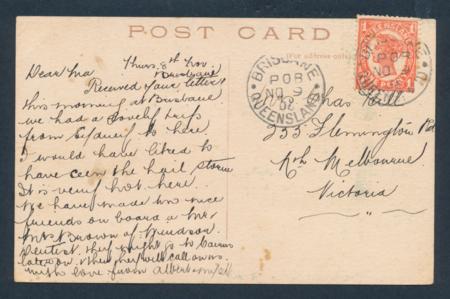 POST CARD
(For address only)
Thurs. 8th Nov
Brisbane
Dear Ma
Received your letter
this morning at Brisbane
we had a lovely trip
from Sydney to here.
I would have liked to
have seen the hail storm
It is very hot here.
We have made two nice
friends on board a Mr
Mrs Brown of Windsor
Dentist. they might go to Cairns
later on. then they will call on us.
with love from Albert
BRISBANE
POB
NO 9
QUEENSLAND
Chas
233 Flemington Rd
Nth Melbourne
Victoria